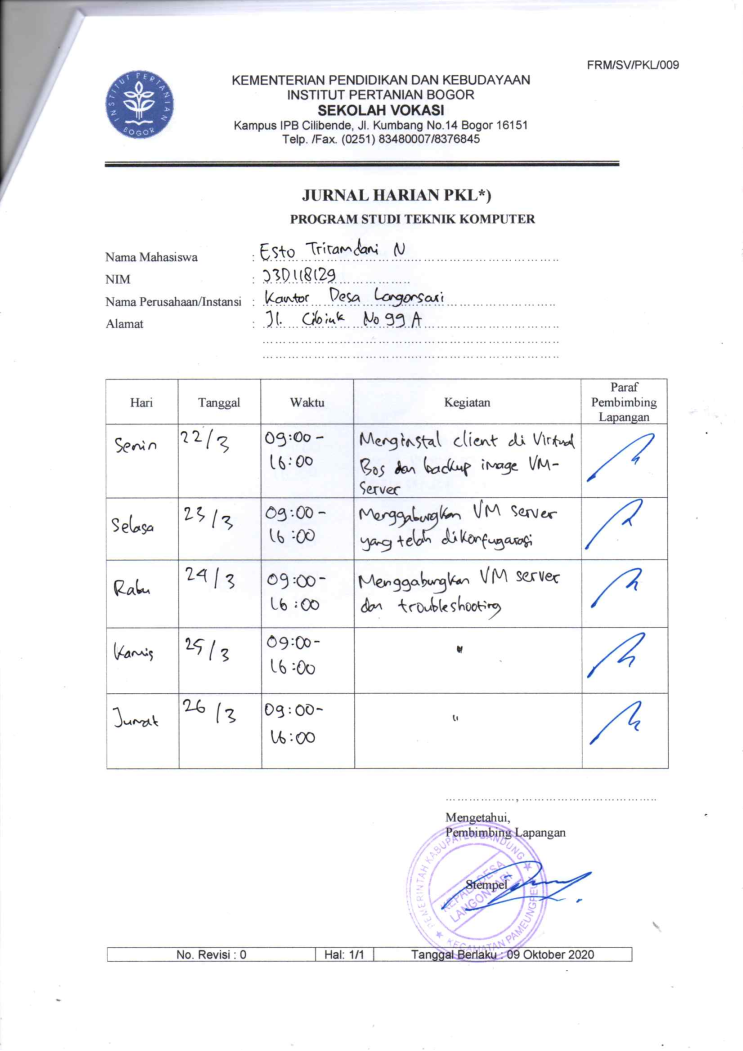 FRM/SV/PKL/009
KEMENTERIAN PENDIDIKAN DAN KEBUDAYAAN
INSTITUT PERTANIAN BOGOR
SEKOLAH VOKASI
Kampus IPB Cilibende, Jl. Kumbang No.14 Bogor 16151
Telp. /Fax. (0251) 83480007/8376845
INSTITUT PERTANIAN
BOGOR
JURNAL HARIAN PKL*)
PROGRAM STUDI TEKNIK KOMPUTER
Nama Mahasiswa : Esto Tritamdani N
NIM : J3D118129
Nama Perusahaan/Instansi : Kantor Desa Langonsari
Alamat : Jl. Cibiuk No 99 A
Hari Tanggal Waktu Kegiatan Paraf Pembimbing Lapangan
Senin 22/3 09:00 - 16:00 Menginstal client di Virtual
Bos dan backup image VM-
Server
Selasa 23/3 09:00 - 16:00 Menggabungkan VM server
yang telah dikonfugarasi
Rabu 24/3 09:00 - 16:00 Menggabungkan VM server
dan troubleshooting
Kamis 25/3 09:00 - 16:00 "
Jumat 26/3 09:00 - 16:00 "
Mengetahui,
Pembimbing Lapangan
Stempel
PEMERINTAH KABUPATEN BANDUNG
KEPALA DESA
LANGONSARI
KECAMATAN PAMEUNGPEUK
No. Revisi : 0 Hal: 1/1 Tanggal Berlaku : 09 Oktober 2020